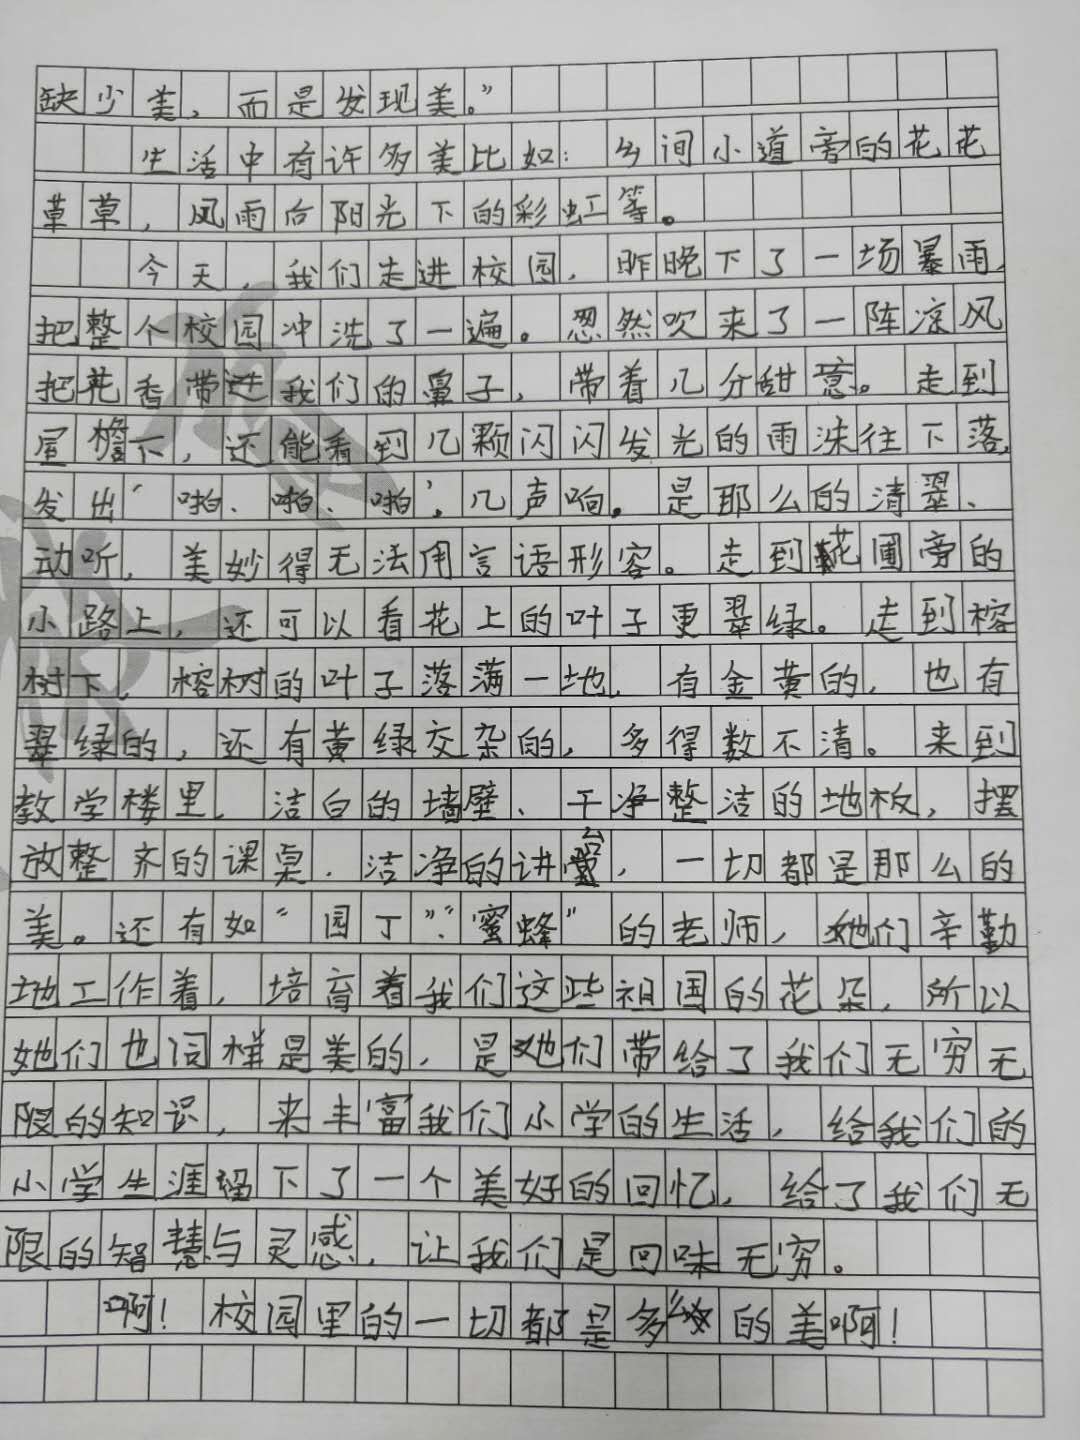 缺少美，而是发现美。”
生活中有许多美比如：乡间小道旁的花花
草草，风雨后阳光下的彩虹等。
今天，我们走进校园，昨晚下了一场暴雨，
把整个校园冲洗了一遍。忽然吹来了一阵凉风
把花香带进我们的鼻子，带着几分甜意。走到
屋檐下，还能看到几颗闪闪发光的雨珠往下落，
发出“啪、啪、啪”，几声响。是那么的清翠、
动听，美妙得无法用言语形容。走到花圃旁的
小路上，还可以看花上的叶子更翠绿。走到榕
树下，榕树的叶子落满一地，有金黄的，也有
翠绿的，还有黄绿交杂的，多得数不清。来到
教学楼里，洁白的墙壁、干净整洁的地板，摆
放整齐的课桌，洁净的讲台，一切都是那么的
美。还有如“园丁”“蜜蜂”的老师，她们辛勤
地工作着，培育着我们这些祖国的花朵，所以
她们也同样是美的，是她们带给了我们无穷无
限的知识，来丰富我们小学的生活，给我们的
小学生涯留下了一个美好的回忆，给了我们无
限的智慧与灵感，让我们是回味无穷。
啊！校园里的一切都是多么的美啊！